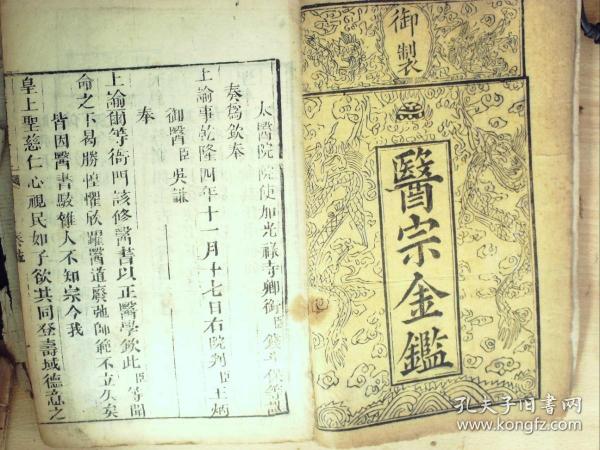 御製
醫宗金鑑
太醫院院使加光祿寺卿銜臣錢斗保等謹
奏爲欽奉
上諭事乾隆四年十一月十七日右院判臣王炳
御醫臣吳謙
奉
上諭爾等衙門該修醫書以正醫學欽此臣等聞
命之下曷勝惶懼欣躍醫道廢弛師範不立久矣
皆因醫書駁雜人不知宗今我
皇上聖慈仁心視民如子欲其同登壽域德意之
孔夫子旧书网
www.kongfz.com